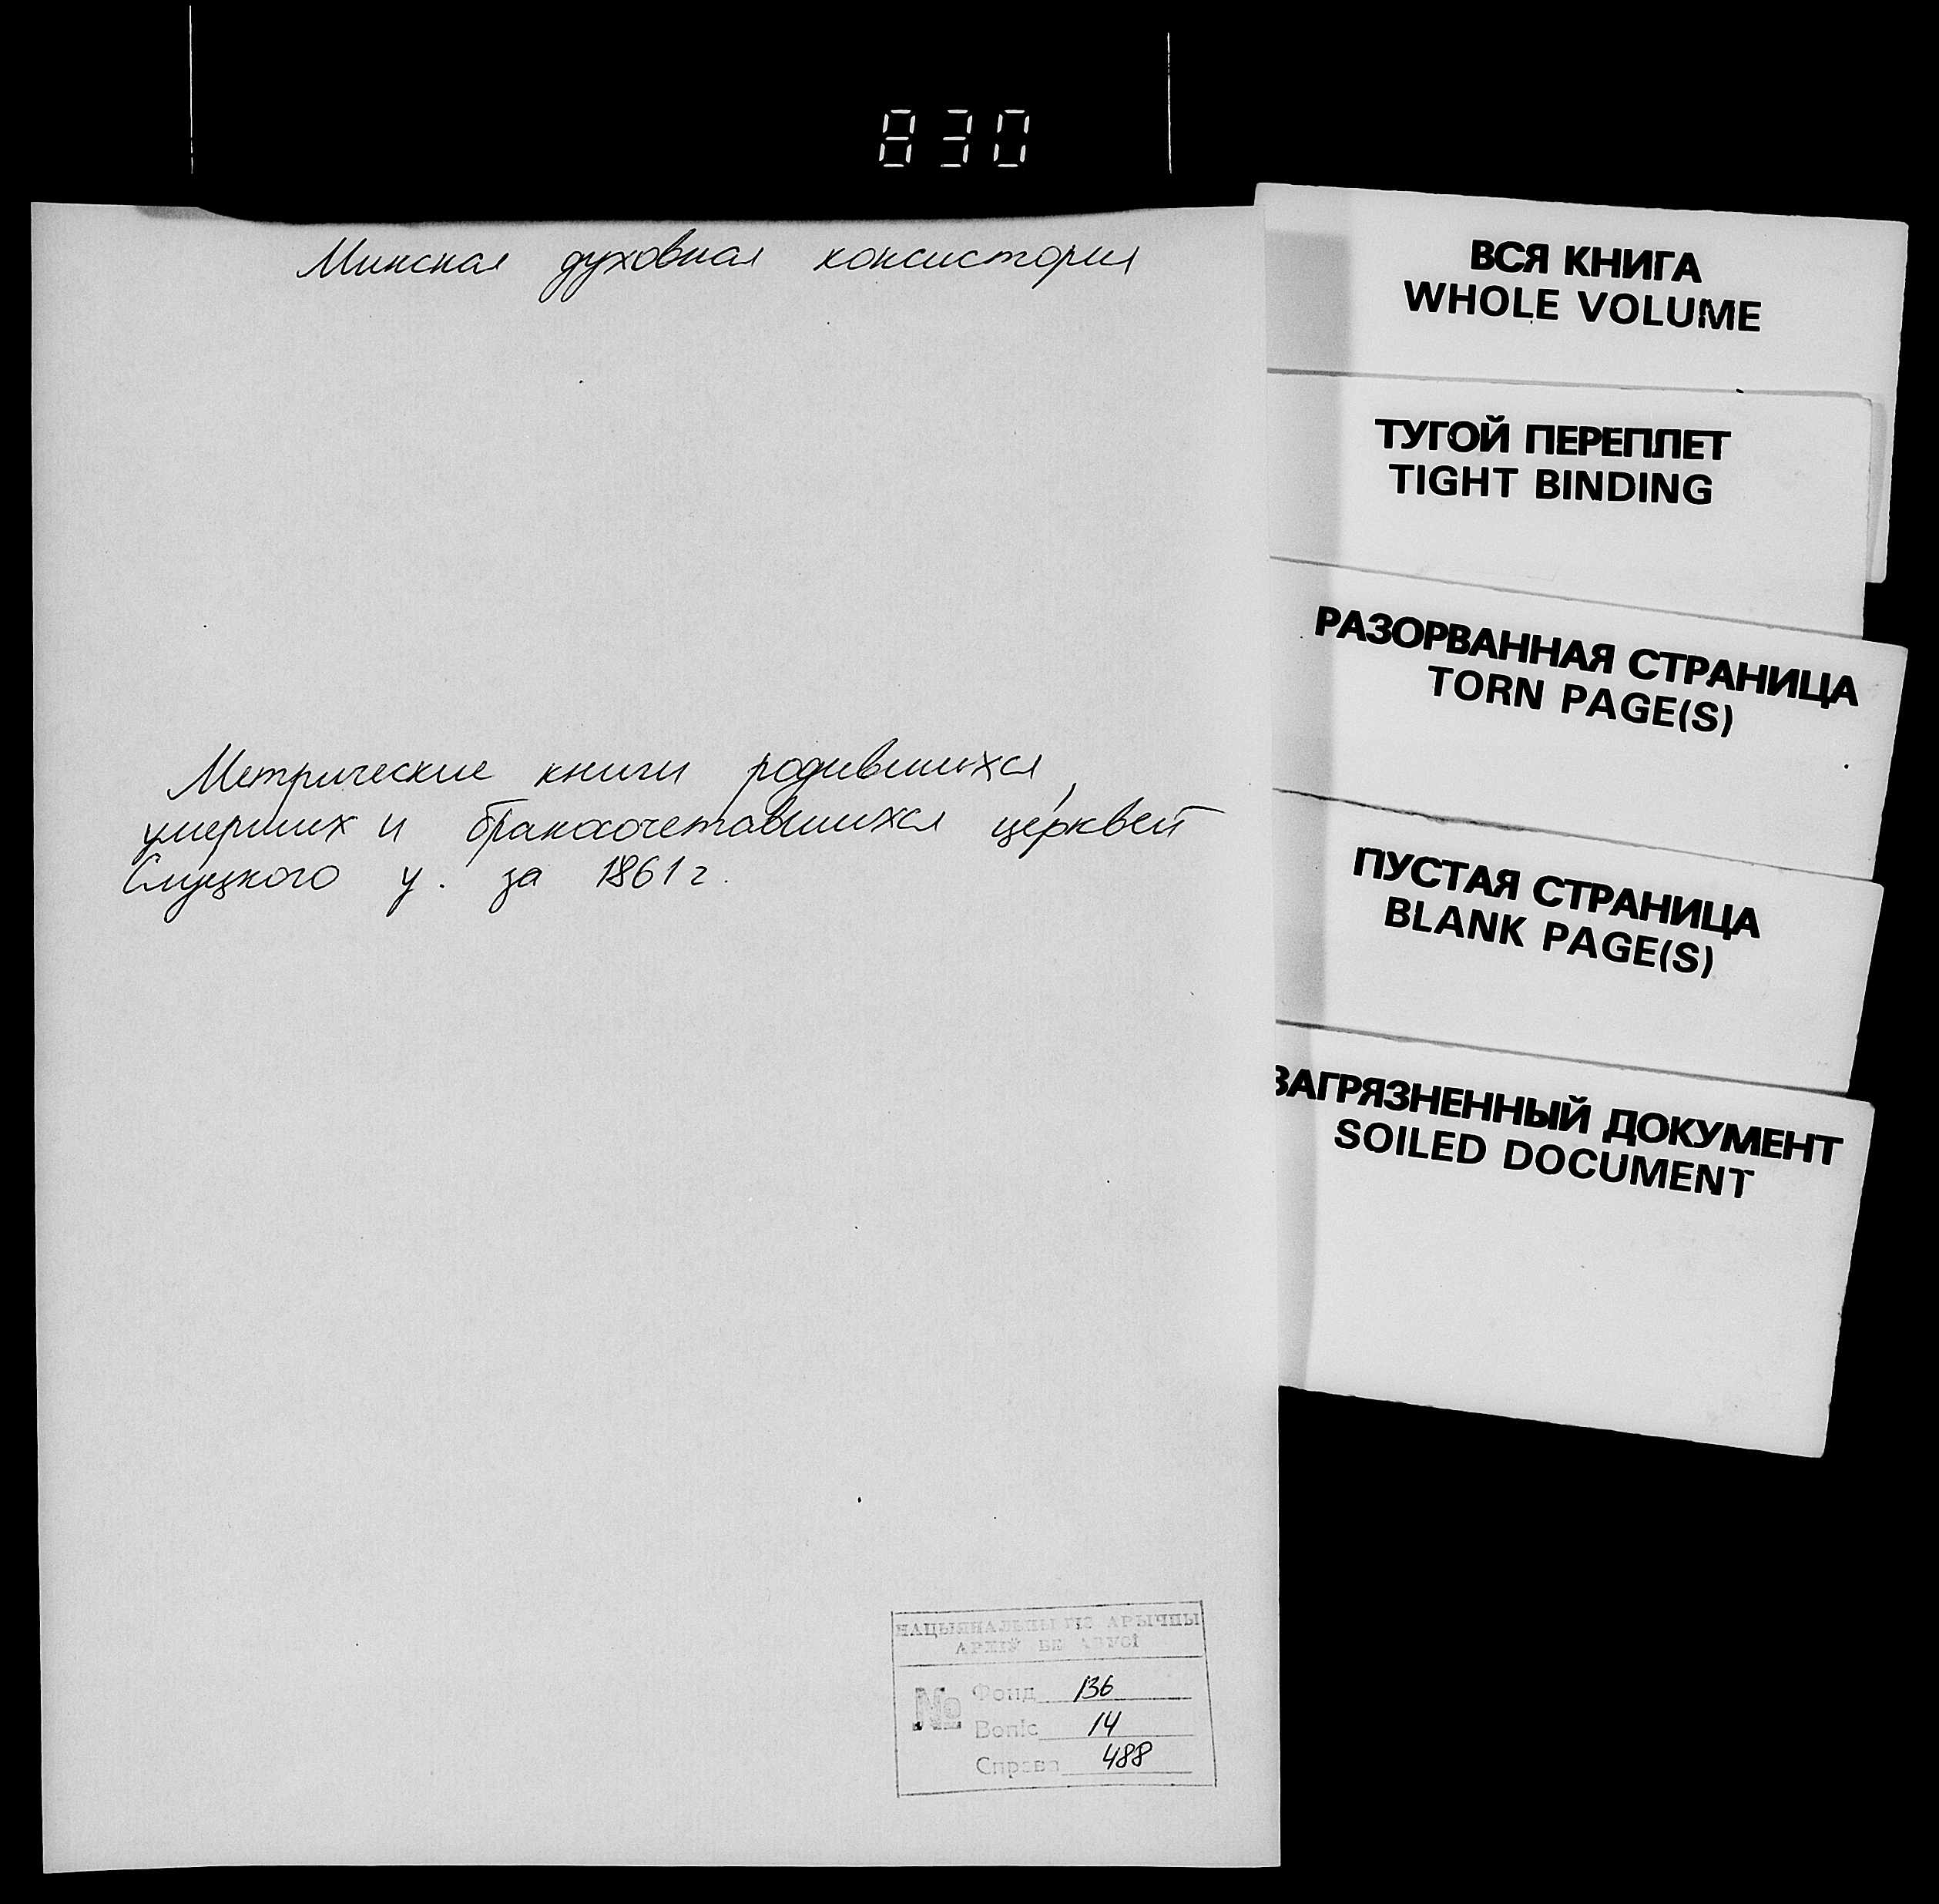 830
Минская духовная консистория
Метрические книги родившихся,
умерших и бракосочетавшихся церквей
Слуцкого у. за 1861 г.
НАЦЫЯНАЛЬНЫ ГІС АРЫЧНЫ
АРХІЎ БЕЛАРУСІ
№ Фонд 136
Вопіс 14
Справа 488
ВСЯ КНИГА
WHOLE VOLUME
ТУГОЙ ПЕРЕПЛЕТ
TIGHT BINDING
РАЗОРВАННАЯ СТРАНИЦА
TORN PAGE(S)
ПУСТАЯ СТРАНИЦА
BLANK PAGE(S)
ЗАГРЯЗНЕННЫЙ ДОКУМЕНТ
SOILED DOCUMENT